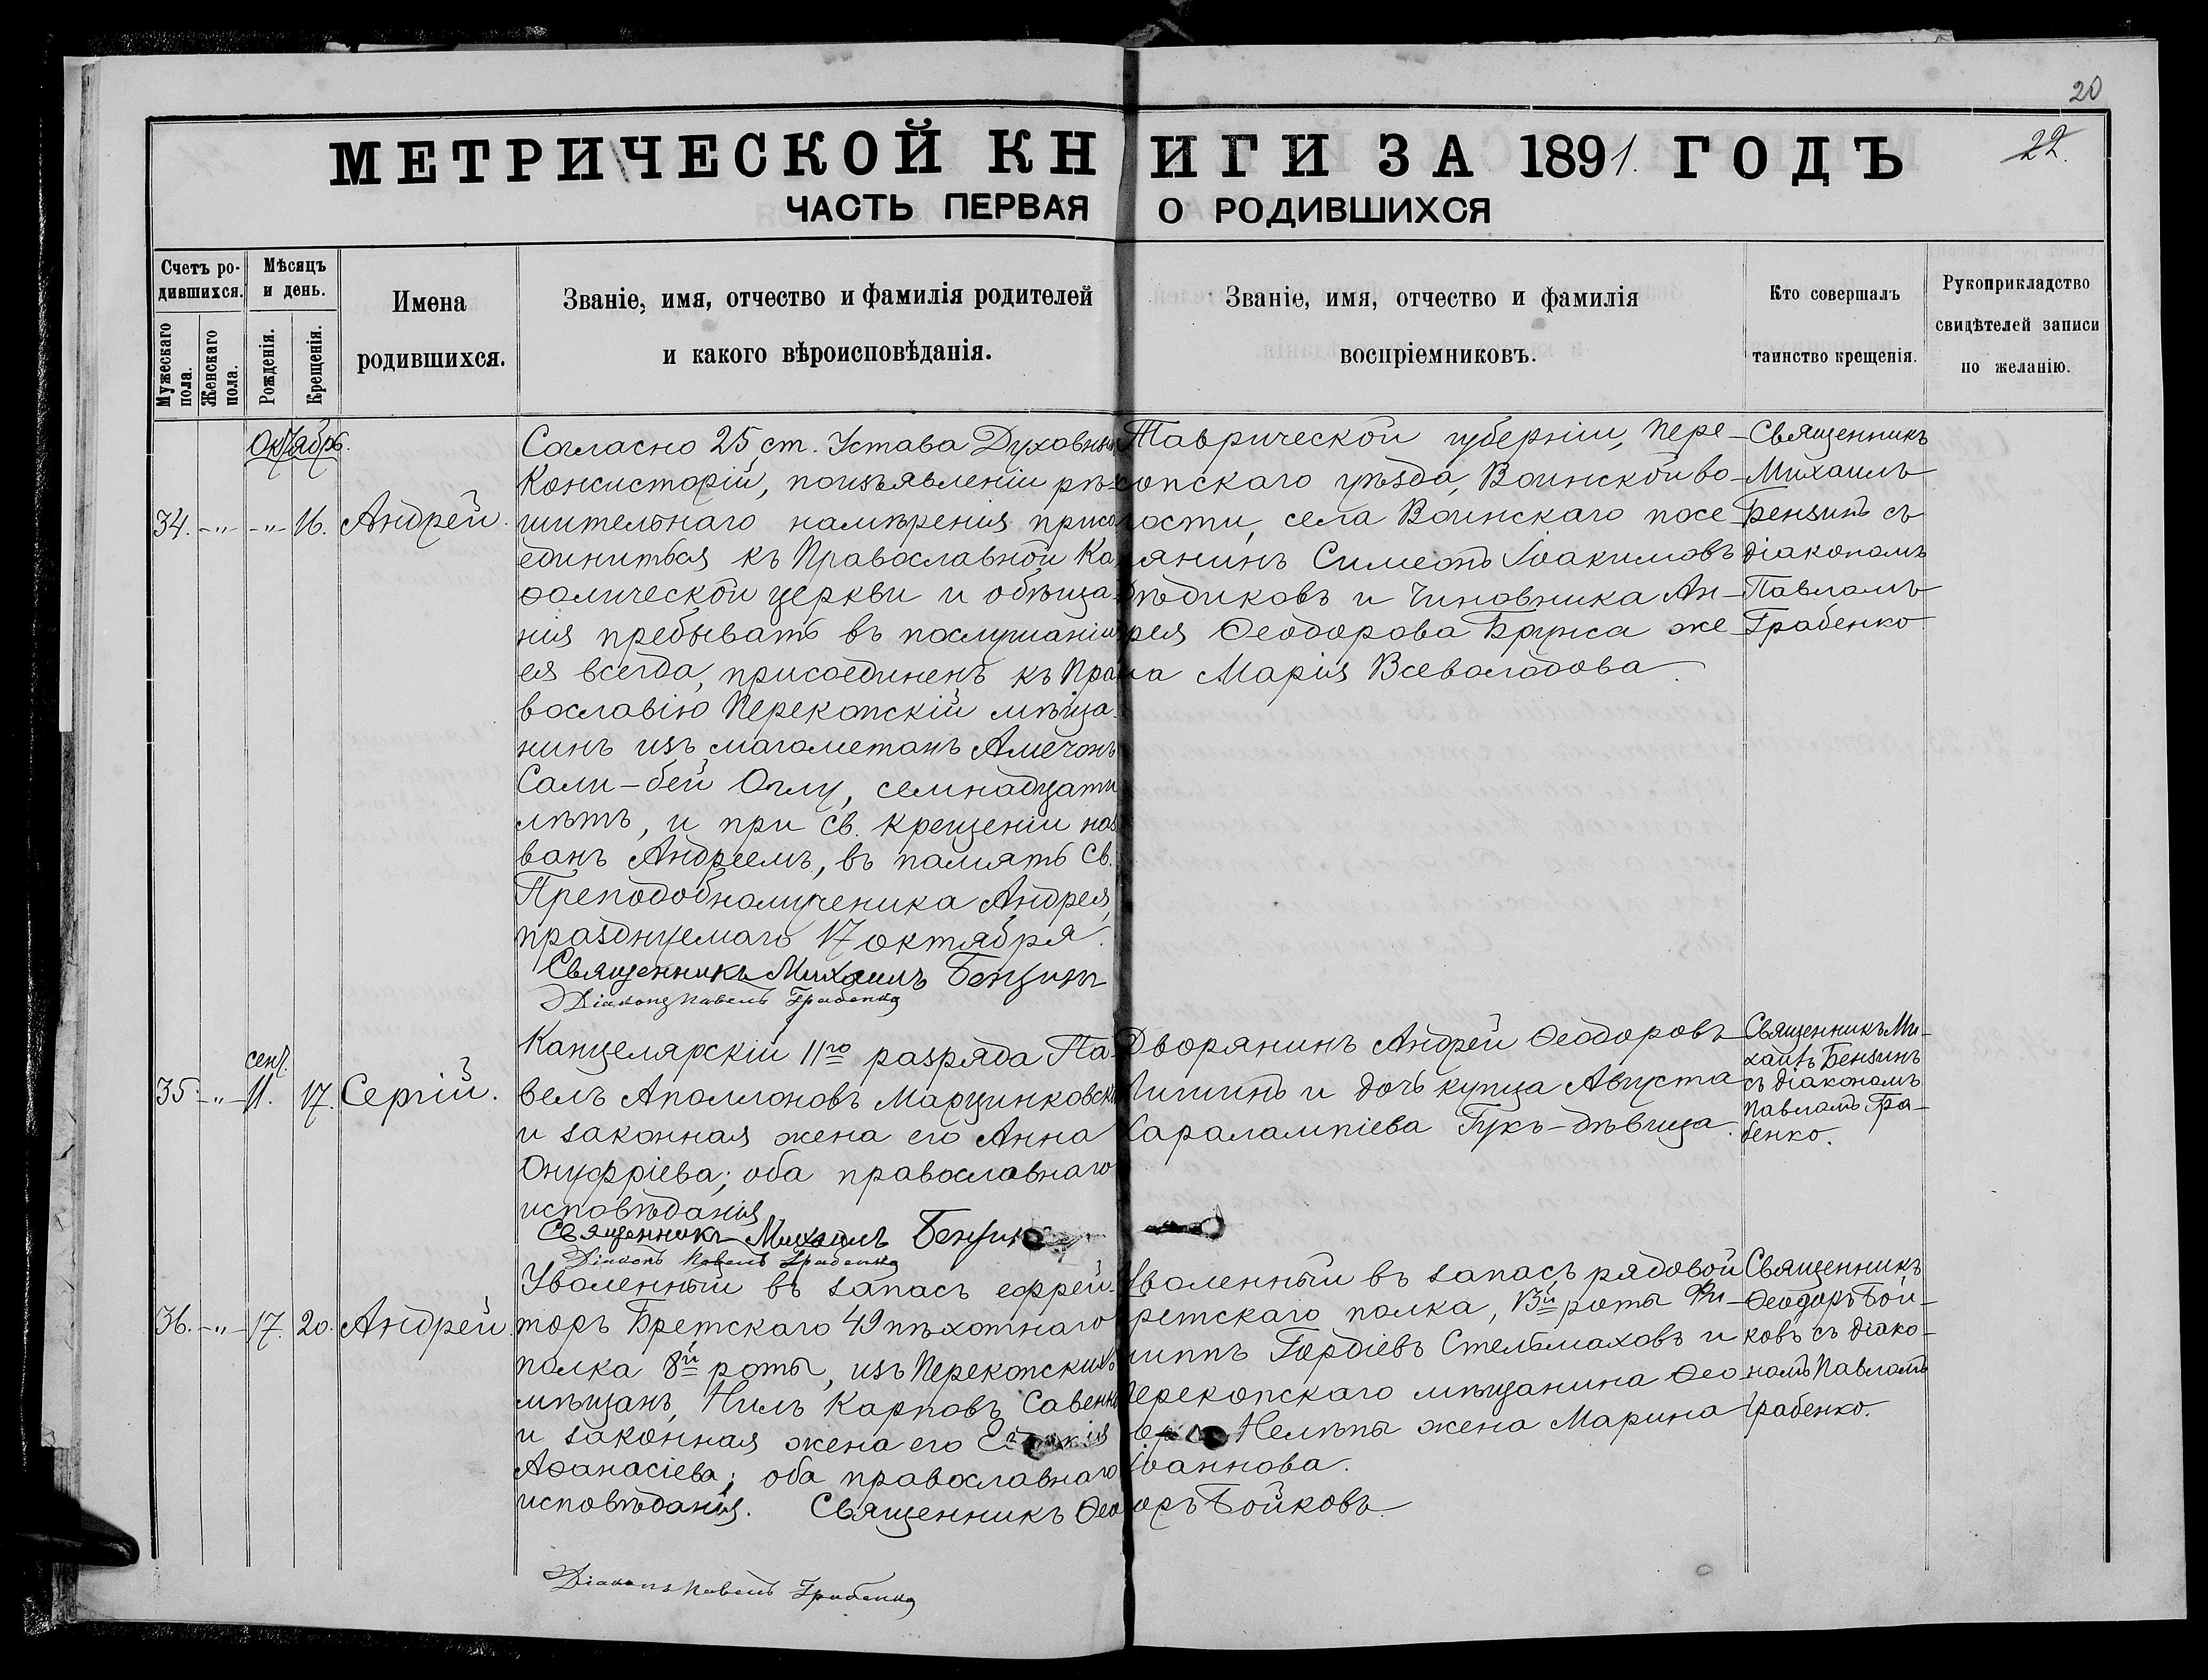 20
22.
МЕТРИЧЕСКОЙ КНИГИ ЗА 1891. ГОДЪ
ЧАСТЬ ПЕРВАЯ О РОДИВШИХСЯ
Счетъ ро-
дившихся.
Мужескаго пола.
Женскаго пола.
Мѣсяцъ
и день.
Рожденія.
Крещенія.
Имена
родившихся.
Званіе, имя, отчество и фамилія родителей
и какого вѣроисповѣданія.
Званіе, имя, отчество и фамилія
воспріемниковъ.
Кто совершалъ
таинство крещенія.
Рукоприкладство
свидѣтелей записи
по желанію.
Октябрь.
34. -"- -"- 16. Андрей.
Согласно 25 ст. Устава Духовныхъ
Консисторій, поизъявленіи рѣ-
шительнаго намѣренія присо
единиться къ Православной Ка
ѳолической церкви и обѣща-
нія пребывать въ послушаніи
ея всегда, присоединенъ къ Пра
вославію Перекопскій мѣща-
нинъ изъ магометанъ Амечонъ
Сали-бей Оглу, семнадцати
лѣтъ, и при св. крещеніи наз
ванъ Андреемъ, въ память св.
Преподобномученика Андрея,
празднуемаго 17 октября.
Священникъ Михаилъ Бензинъ
Діаконъ Павелъ Грабенко
Таврической губерніи, Пере-
копскаго уѣзда, Воинской во-
лости, села Воинскаго посе-
лянинъ Симеонъ Іоакимовъ
Дѣдиковъ и Чиновника Ан-
дрея Ѳеодорова Брунса же
на Марія Всеволодова.
Священникъ
Михаилъ
Бензинъ съ
діакономъ
Павломъ
Грабенко
сент.
35. -"- 11. 17. Сергій.
Канцелярскій IIго разряда Па-
велъ Аполлоновъ Марцинковскій
и законная жена его Анна
Онуфріева; оба православнаго
исповѣданія
Священникъ Михаилъ Бензинъ
Діаконъ Павелъ Грабенко
Дворянинъ Андрей Ѳеодоровъ
Лишинъ и дочь купца Августа
Харалампіева Гукъ-дѣвица.
Священникъ Ми-
хаилъ Бензинъ
съ діакономъ
Павломъ Гра-
бенко.
36. -"- 17. 20. Андрей
Уволенный въ запасъ ефрей-
торъ Бретскаго 49 пѣхотнаго
полка 8й роты, изъ Перекопскихъ
мѣщанъ, Нилъ Карповъ Савенко
и законная жена его Евдокія
Аѳанасіева; оба православнаго
исповѣданія. Священникъ Ѳеодоръ Бойковъ
Діаконъ Павелъ Грабенко
Уволенный въ запасъ рядовой
Бретскаго полка, 13й роты Фи-
липпъ Гордіевъ Стельмаховъ и
Перекопскаго мѣщанина Ѳео
Нелѣпы жена Марина
Іоаннова.
Священникъ
Ѳеодоръ Бой-
ковъ съ діако-
номъ Павломъ
Грабенко.